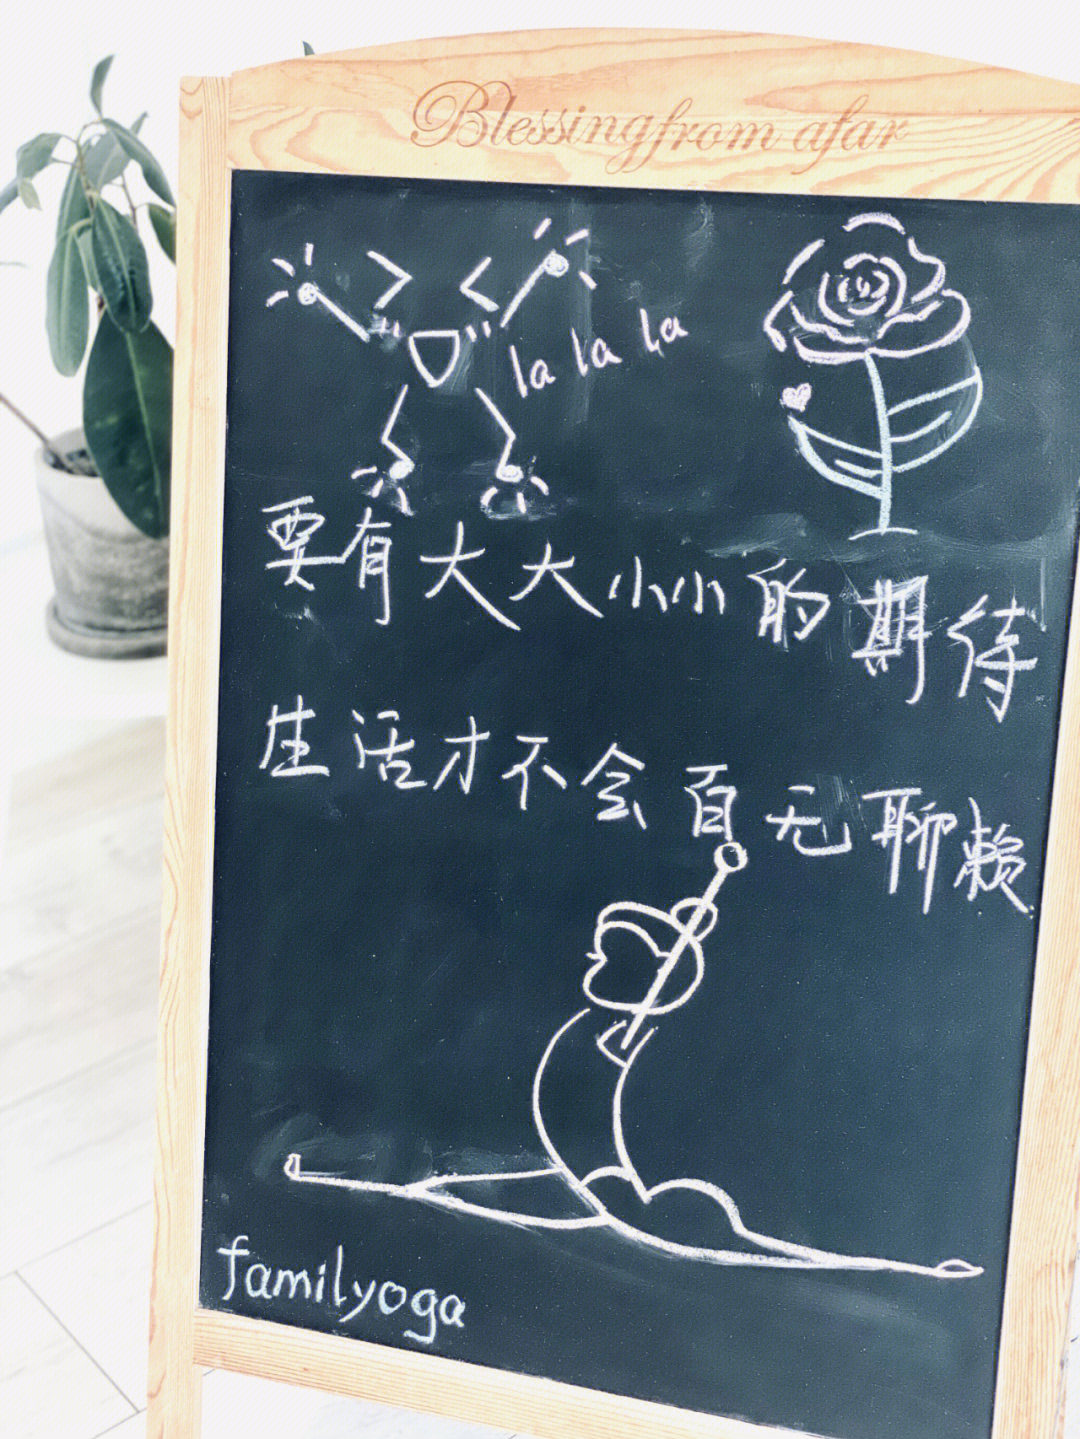 Blessingfrom afar
la la la
要有大大小小的期待
生活才不会百无聊赖
familyoga